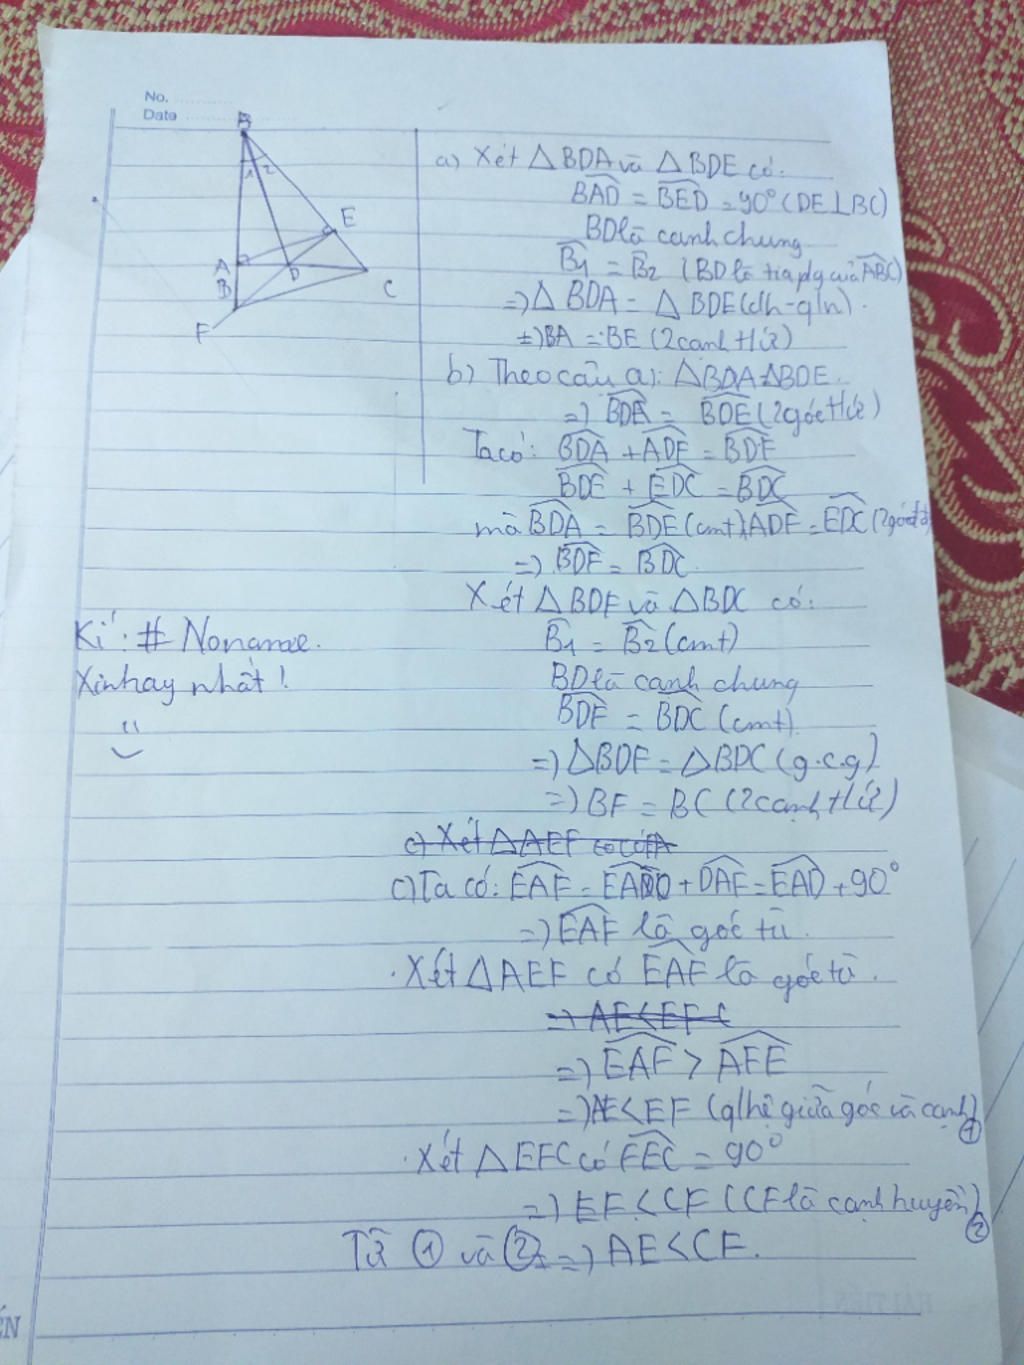 No.
Date
B
1 2
E
A
D
B
C
F
a) Xét △BDA và △BDE có:
BAD = BED = 90° (DE⊥BC)
BD là cạnh chung
B1 = B2 (BD là tia p/g của ABC)
=) △BDA = △BDE (ch-gn).
=) BA = BE (2 cạnh t/ứ)
b) Theo câu a): △BDA=△BDE.
=) BDA = BDE (2 góc t/ứ)
Ta có: BDA + ADF = BDF
BDE + EDC = BDC
mà BDA = BDE (cmt), ADF = EDC (2 góc đ đ)
=) BDF = BDC
Xét △BDF và △BDC có:
B1 = B2 (cmt)
BD là cạnh chung
BDF = BDC (cmt)
=) △BDF = △BDC (g.c.g)
=) BF = BC (2 cạnh t/ứ)
Kí: # Noname.
Xinhay nhất!
c) Xét △AEF có
c) Ta có: EAF = EAD + DAF = EAD + 90°
=) EAF là góc tù.
. Xét △AEF có EAF là góc tù.
=) AE<EF C
=) EAF > AFE
=) AE < EF (q/hệ giữa góc và cạnh) 1
. Xét △EFC có FEC = 90°
=) EF < CF (CF là cạnh huyền) 2
Từ 1 và 2 =) AE < CF.
ẾN
HẢI TIẾN